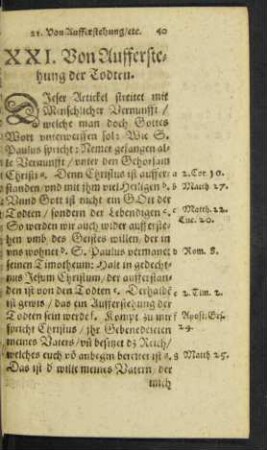 21. Von Aufferstehung/etc. 40
XXI. Von Aufferste-
hung der Todten.
DJeser Artickel streitet mit
Menschlicher Vernunfft /
welche man doch Gottes
Wort unterweissen sol: Wie S.
Paulus spricht: Nemet gefangen al-
le Vernunfft / unter den Gehorsam
Christi a. Denn Christus ist auffer- a 2. Cor 10.
standen / und mit jhm viel Heiligen b. b Matth 27.
Vnnd Gott ist nicht ein GOtt der
Todten / sondern der Lebendigen c. c Matth. 22.
Luc. 20.
So werden wir auch wider aufferste-
hen umb des Geistes willen, der in
uns wohnet d. S. Paulus vermanet d Rom. 8.
seinen Timotheum: Halt in gedecht-
nus Jesum Christum, der aufferstan-
den ist von den Todten e. Derhalbē e 2. Tim. 2.
ist gewis / das ein Aufferstehung der
Todten sein werde f. Kompt zu mir f Apost. Ges.
spricht Christus / jhr Gebenedeieten 24.
meines Vaters / vñ besitzet dz Reich /
welches euch võ anbegin bereitet ist g. g Matth 25.
Das ist d wille meines Vatern, der
mich